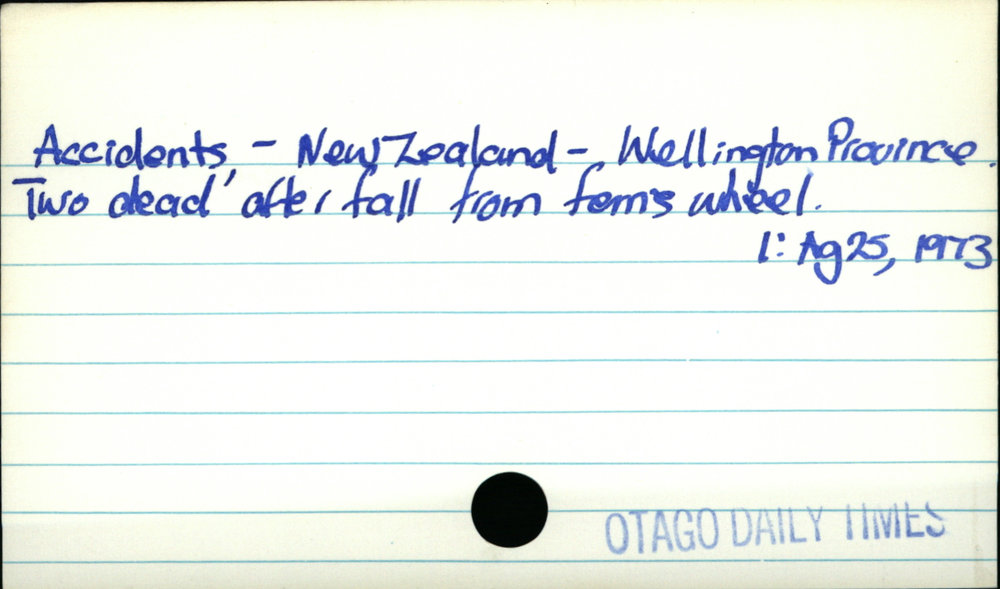 Accidents, - New Zealand - Wellington Province.
Two dead after fall from ferris wheel.
1: Ag 25, 1973
OTAGO DAILY TIMES